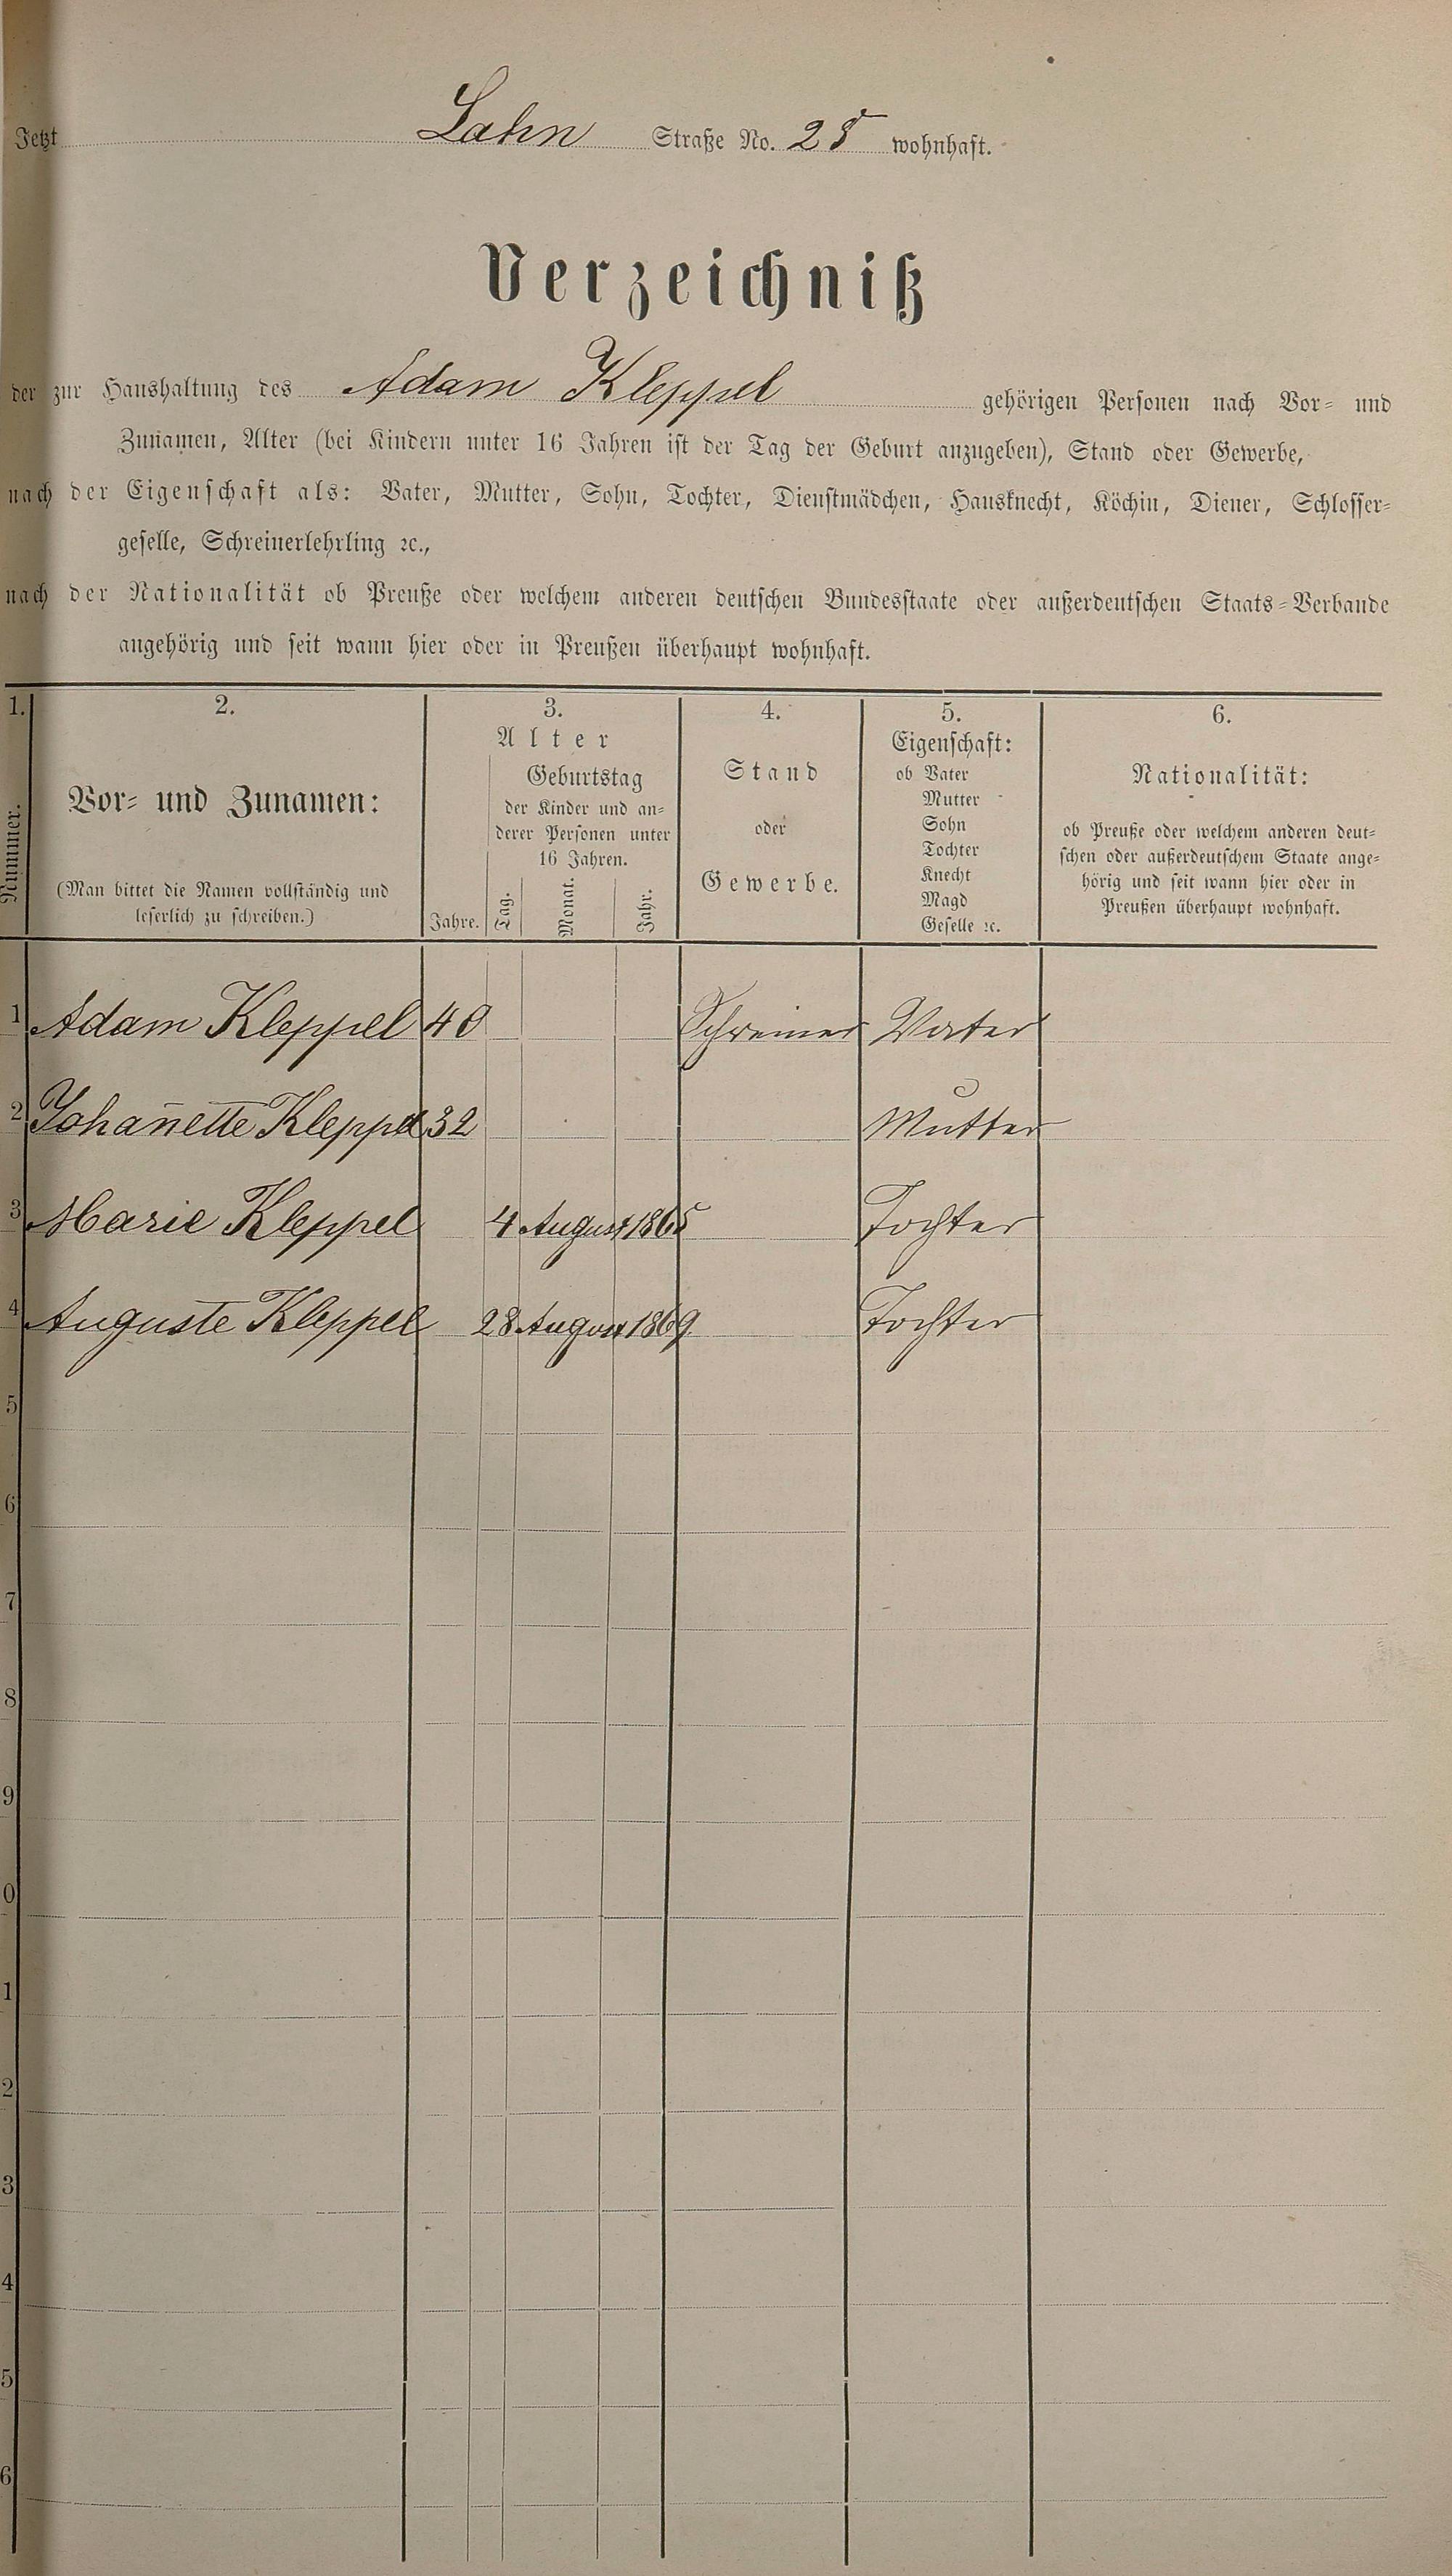 Jetzt Lahn Straße No. 25 wohnhaft.
Verzeichniß
der zur Haushaltung des Adam Kleppel gehörigen Personen nach Vor- und
Zunamen, Alter (bei Kindern unter 16 Jahren ist der Tag der Geburt anzugeben), Stand oder Gewerbe,
nach der Eigenschaft als: Vater, Mutter, Sohn, Tochter, Dienstmädchen, Hausknecht, Köchin, Diener, Schlosser-
geselle, Schreinerlehrling ꝛc.,
nach der Nationalität ob Preuße oder welchem anderen deutschen Bundesstaate oder außerdeutschen Staats-Verbande
angehörig und seit wann hier oder in Preußen überhaupt wohnhaft.
1.
Nummer.
2.
Vor- und Zunamen:
(Man bittet die Namen vollständig und
leserlich zu schreiben.)
3.
Alter
Jahre.
Geburtstag
der Kinder und an-
derer Personen unter
16 Jahren.
Tag.
Monat.
Jahr.
4.
Stand
oder
Gewerbe.
5.
Eigenschaft:
ob Vater
Mutter
Sohn
Tochter
Knecht
Magd
Geselle ꝛc.
6.
Nationalität:
ob Preuße oder welchem anderen deut-
schen oder außerdeutschem Staate ange-
hörig und seit wann hier oder in
Preußen überhaupt wohnhaft.
1 Adam Kleppel 40 Schreiner Vater
2 Johan̅ette Kleppel 32 Mutter
3 Marie Kleppel 4 August 1865 Tochter
4 Auguste Kleppel 28 August 1869 Tochter
5
6
7
8
9
0
1
2
3
4
5
6